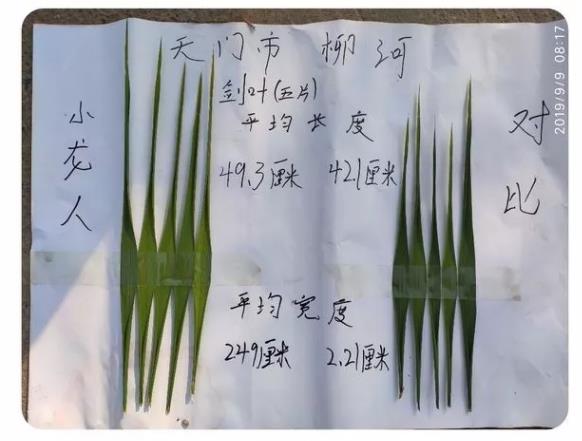 天门市 柳河
剑叶(五片)
平均长度
49.3厘米 42.1厘米
平均宽度
2.49厘米 2.21厘米
小龙人
对比
2019/9/9 08:17